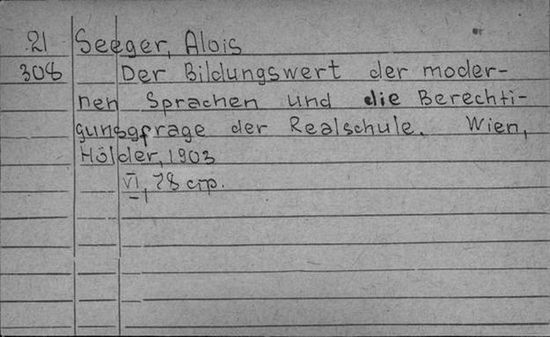 21 Seeger, Alois
308 Der Bildungswert der moder-
nen Sprachen und die Berechti-
gungsfrage der Realschule. Wien,
Hölder, 1903
VI, 78 стр.